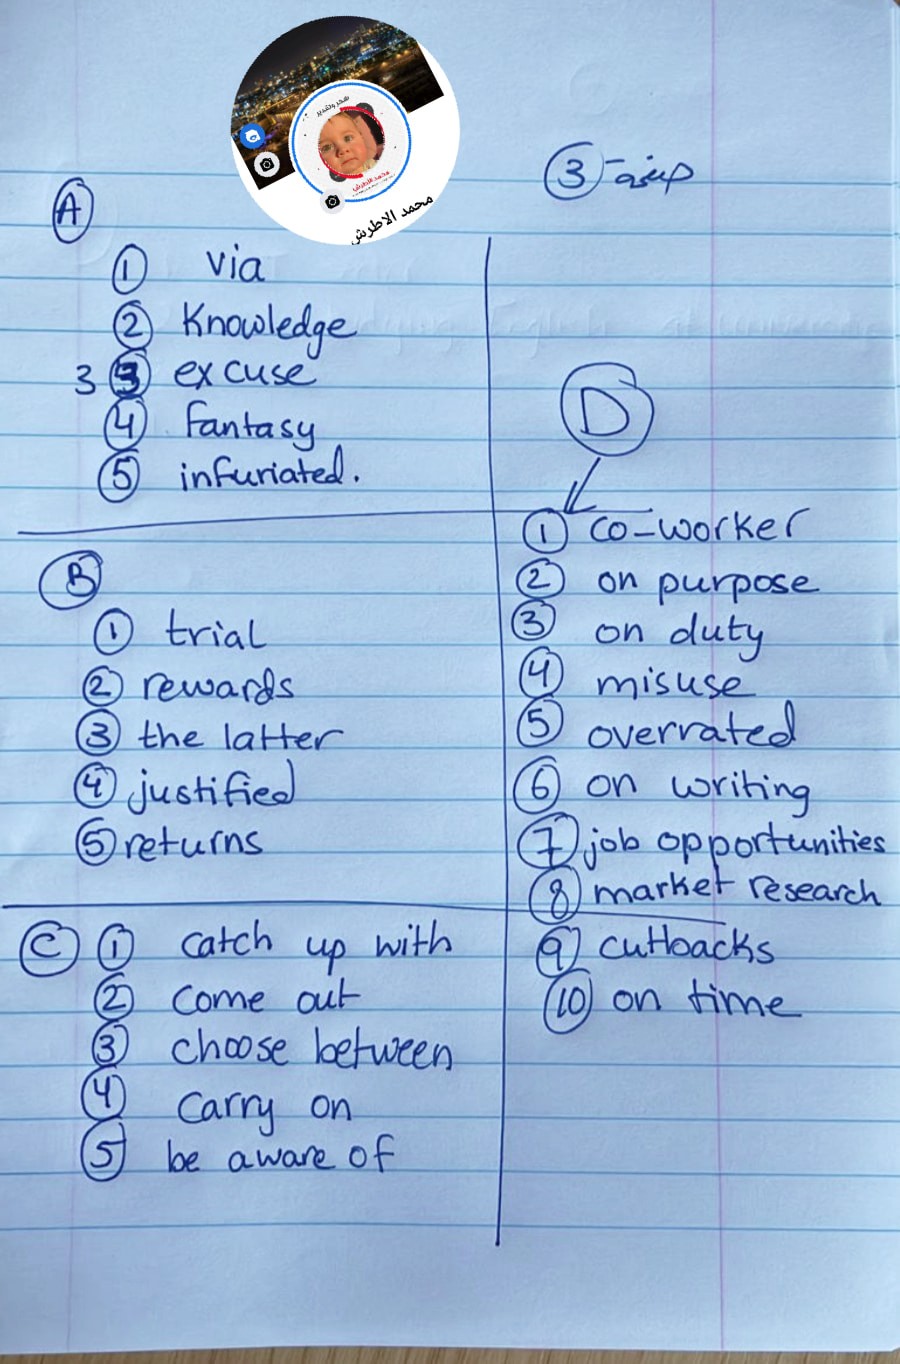 فخر وتقدير
محمد الاطرش
محمد الاطرش
صفحة - 3
A
1 via
2 Knowledge
3 3 excuse
4 Fantasy
5 infuriated.
B
1 trial
2 rewards
3 the latter
4 justified
5 returns
C 1 catch up with
2 come out
3 choose between
4 carry on
5 be aware of
D
1 co-worker
2 on purpose
3 on duty
4 misuse
5 overrated
6 on writing
7 job opportunities
8 market research
9 cutbacks
10 on time